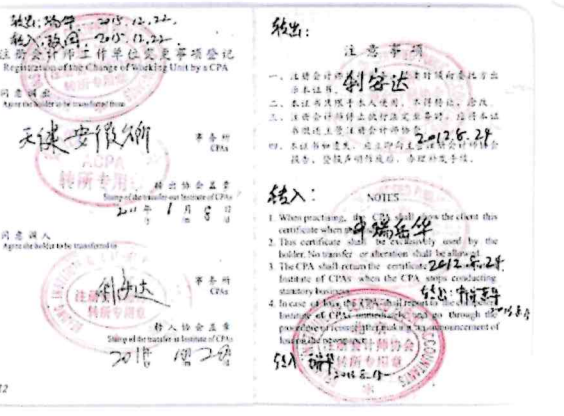 转出：瑞华 2015.12.22.
转入：致同 2015.12.22.
注册会计师工作单位变更事项登记
Registration of the Change of Working Unit by a CPA
同意调出
Agree the holder to be transferred from
天健安徽分所
事务所
CPAs
转所专用章
转出协会盖章
Stamp of the transfer-out Institute of CPAs
年 月 8 日
同意调入
Agree the holder to be transferred to
利安达
事务所
CPAs
转所专用章
转入协会盖章
Stamp of the transfer-in Institute of CPAs
12
转出：
注意事项
利安达
一、注册会计师
出示本证书。
二、本证书只限于本人使用，不得转让、涂改。
三、注册会计师停止执行法定业务时，应将本证
书缴还主管注册会计师协会。
2012.8.24
四、本证书如遗失，应立即向主管注册会计师协会
报告，登报声明作废后，办理补发手续。
转入：
NOTES
1. When practising, the CPA shall show the client this
certificate when
中瑞岳华
2. This certificate shall be exclusively used by the
holder. No transfer or alteration shall be allowed.
3. The CPA shall return the certificate
2012.8.24
Institute of CPAs when the CPA stops conducting
statutory business.
4. In case of loss, the CPA shall report to the
Institute of CPAs immediately and go through the
procedure of reissue after making an announcement of
loss on the newspaper.
注册会计师协会
转所专用章
转入 瑞华